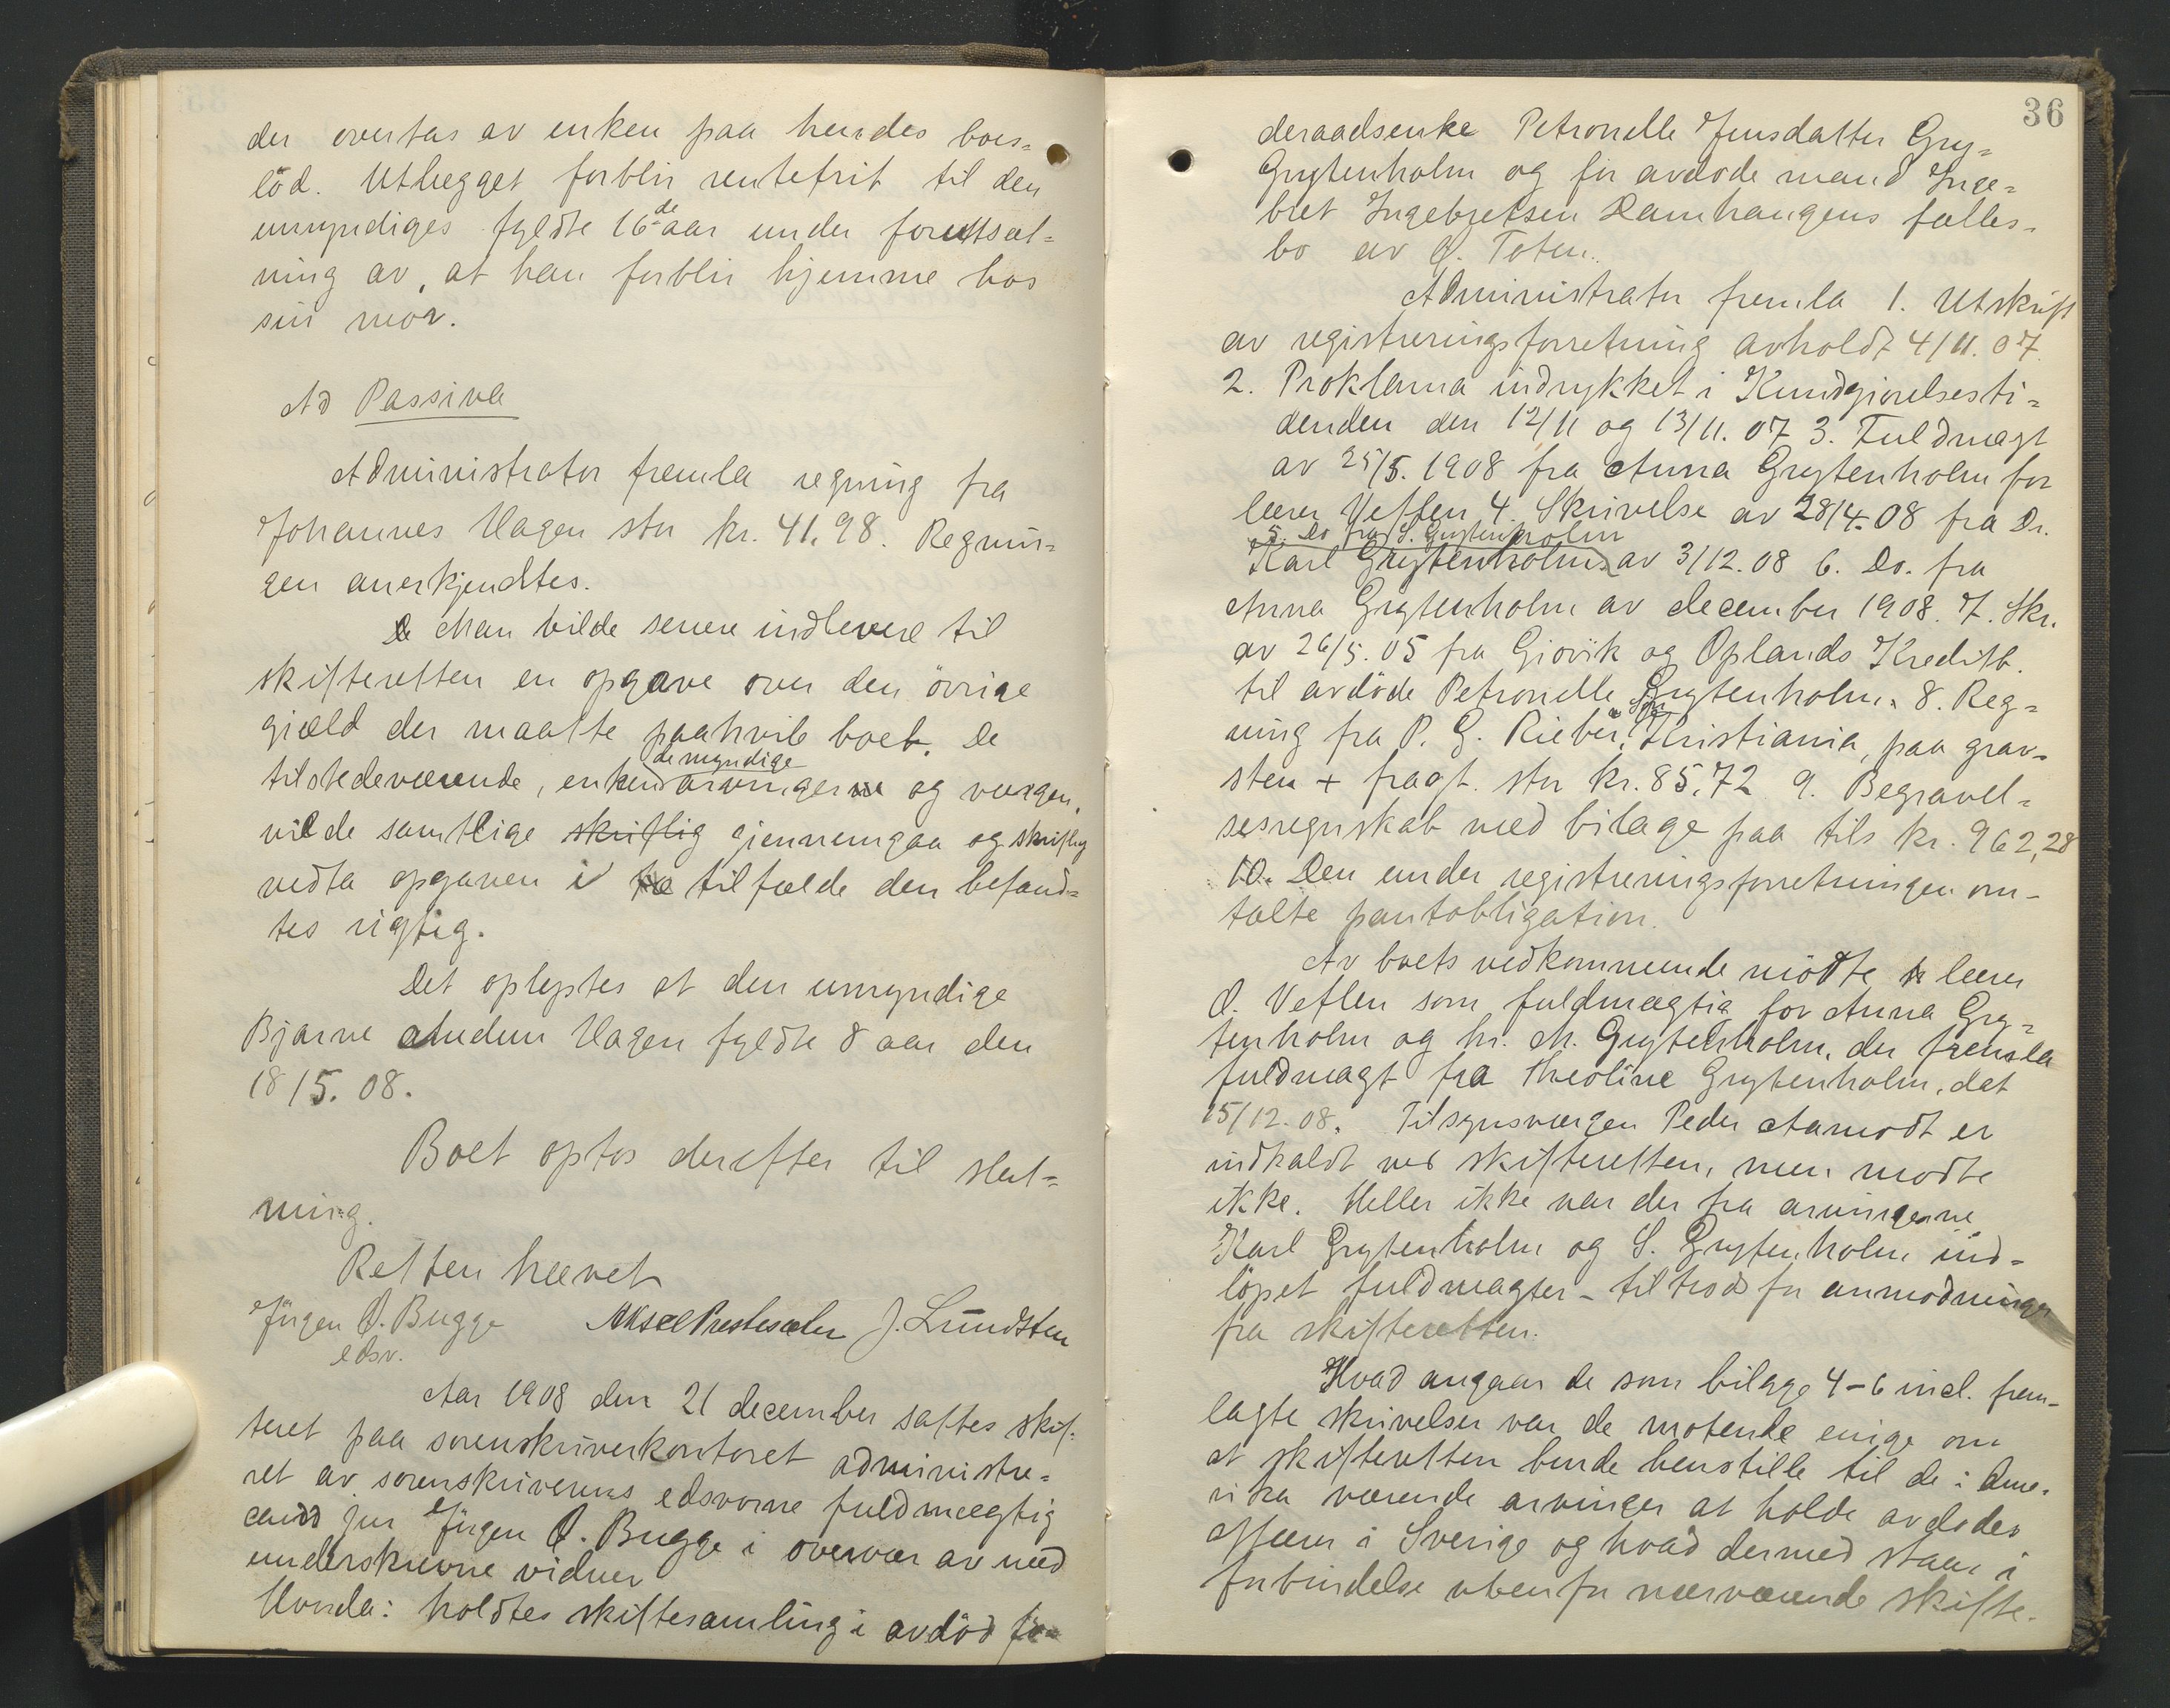 der overtas av enken paa hendes boes-
löd. Utlægget forblir rentefrit til den
umyndiges fyldte 16de aar under forutsæt-
ning av, at han forblir hjemme hos
sin mor.
Ad Passiva
Administrator fremla regning fra
Johannes Hagen stor kr. 41,98. Regnin-
gen anerkjendtes.
Man vilde senere indlevere til
skifteretten en opgave over den övrige
gjæld der maatte paahvile boet. De
tilstedeværende, enken de myndige arvinger og værgen,
vilde samtlige skriftlig gjennemgaa og skriftlig
vedta opgaven i tilfælde den befand-
tes rigtig.
Det oplystes at den umyndige
Bjarne Amdem Hagen fyldte 8 aar den
18/5. 08.
Boet optos derefter til slut-
ning.
Retten hævet
Jürgen O. Bugge Aksel Prestesæter J. Lundsten
edsv.
Aar 1908 den 21 december sattes skif-
teret paa sorenskriverkontoret administre-
ret av sorenskriverens edsvorne fuldmægtig
cand jur Jürgen O. Bugge i overvær av med
underskrevne vidner
Hvorda: holdtes skiftesamling i avdöd fö-
36
deraadsenke Petronelle Jensdatter Gry-
Grytenholm og før avdøde mand Inge-
bret Ingebretsen Ramhaugens fælles-
bo av Ø. Toten.
Administrator fremla 1. Utskrift
av registreringsforretning avholdt 4/11. 07.
2. Proklama indrykket i Kundgjørelsesti-
denden den 12/11 og 13/11. 07 3. Fuldmagt
av 25/5. 1908 fra Anna Grytenholm for
lærer Veflen 4. Skrivelse av 28/4. 08 fra Dr.
5. Do fra S. Grytenholm
Karl Grytenholm av 3/12. 08 6. Do. fra
Anna Grytenholm av december 1908. 7. Skr.
av 26/5. 05 fra Gjøvik og Oplands Kreditb.
til avdöde Petronelle Grytenholm. 8. Reg-
ning fra P. G. Rieber & Søn Kristiania, paa grav-
sten + fragt. stor kr. 85,72 9. Begravel-
sesregnskab med bilage paa tils kr. 962,28
10. Den under registreringsforretningen om-
talte pantobligation.
Av boets vedkommende mödte lærer
O. Veflen som fuldmægtig for Anna Gry-
tenholm og hr. M. Grytenholm, der fremla
fuldmagt fra Theoline Grytenholm, dat
15/12. 08. Tilsynsværgen Peder Aamodt er
indkaldt ved skifteretten, men mødte
ikke. Heller ikke var der fra arvingerne
Karl Grytenholm og S. Grytenholm ind-
löpet fuldmagter - til trods for anmodninger
fra skifteretten.
Hvad angaar de som bilage 4-6 incl. frem-
lagte skrivelser var de møtende enige om
at skifteretten burde henstille til de i Ame-
rika værende arvinger at holde avdødes
i Sverige og hvad dermed staar i
forbindelse utenfor nærværende skifte.